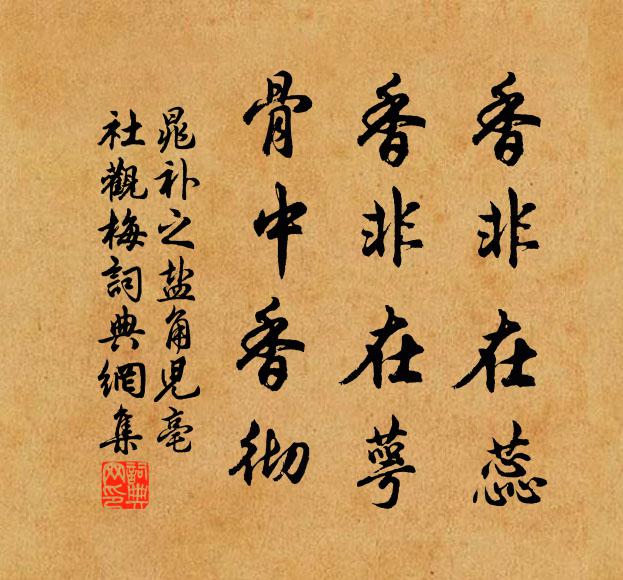 香非在蕊
香非在萼
骨中香彻
晁补之盐角儿亳
社觀梅詞典網集
詞典網印